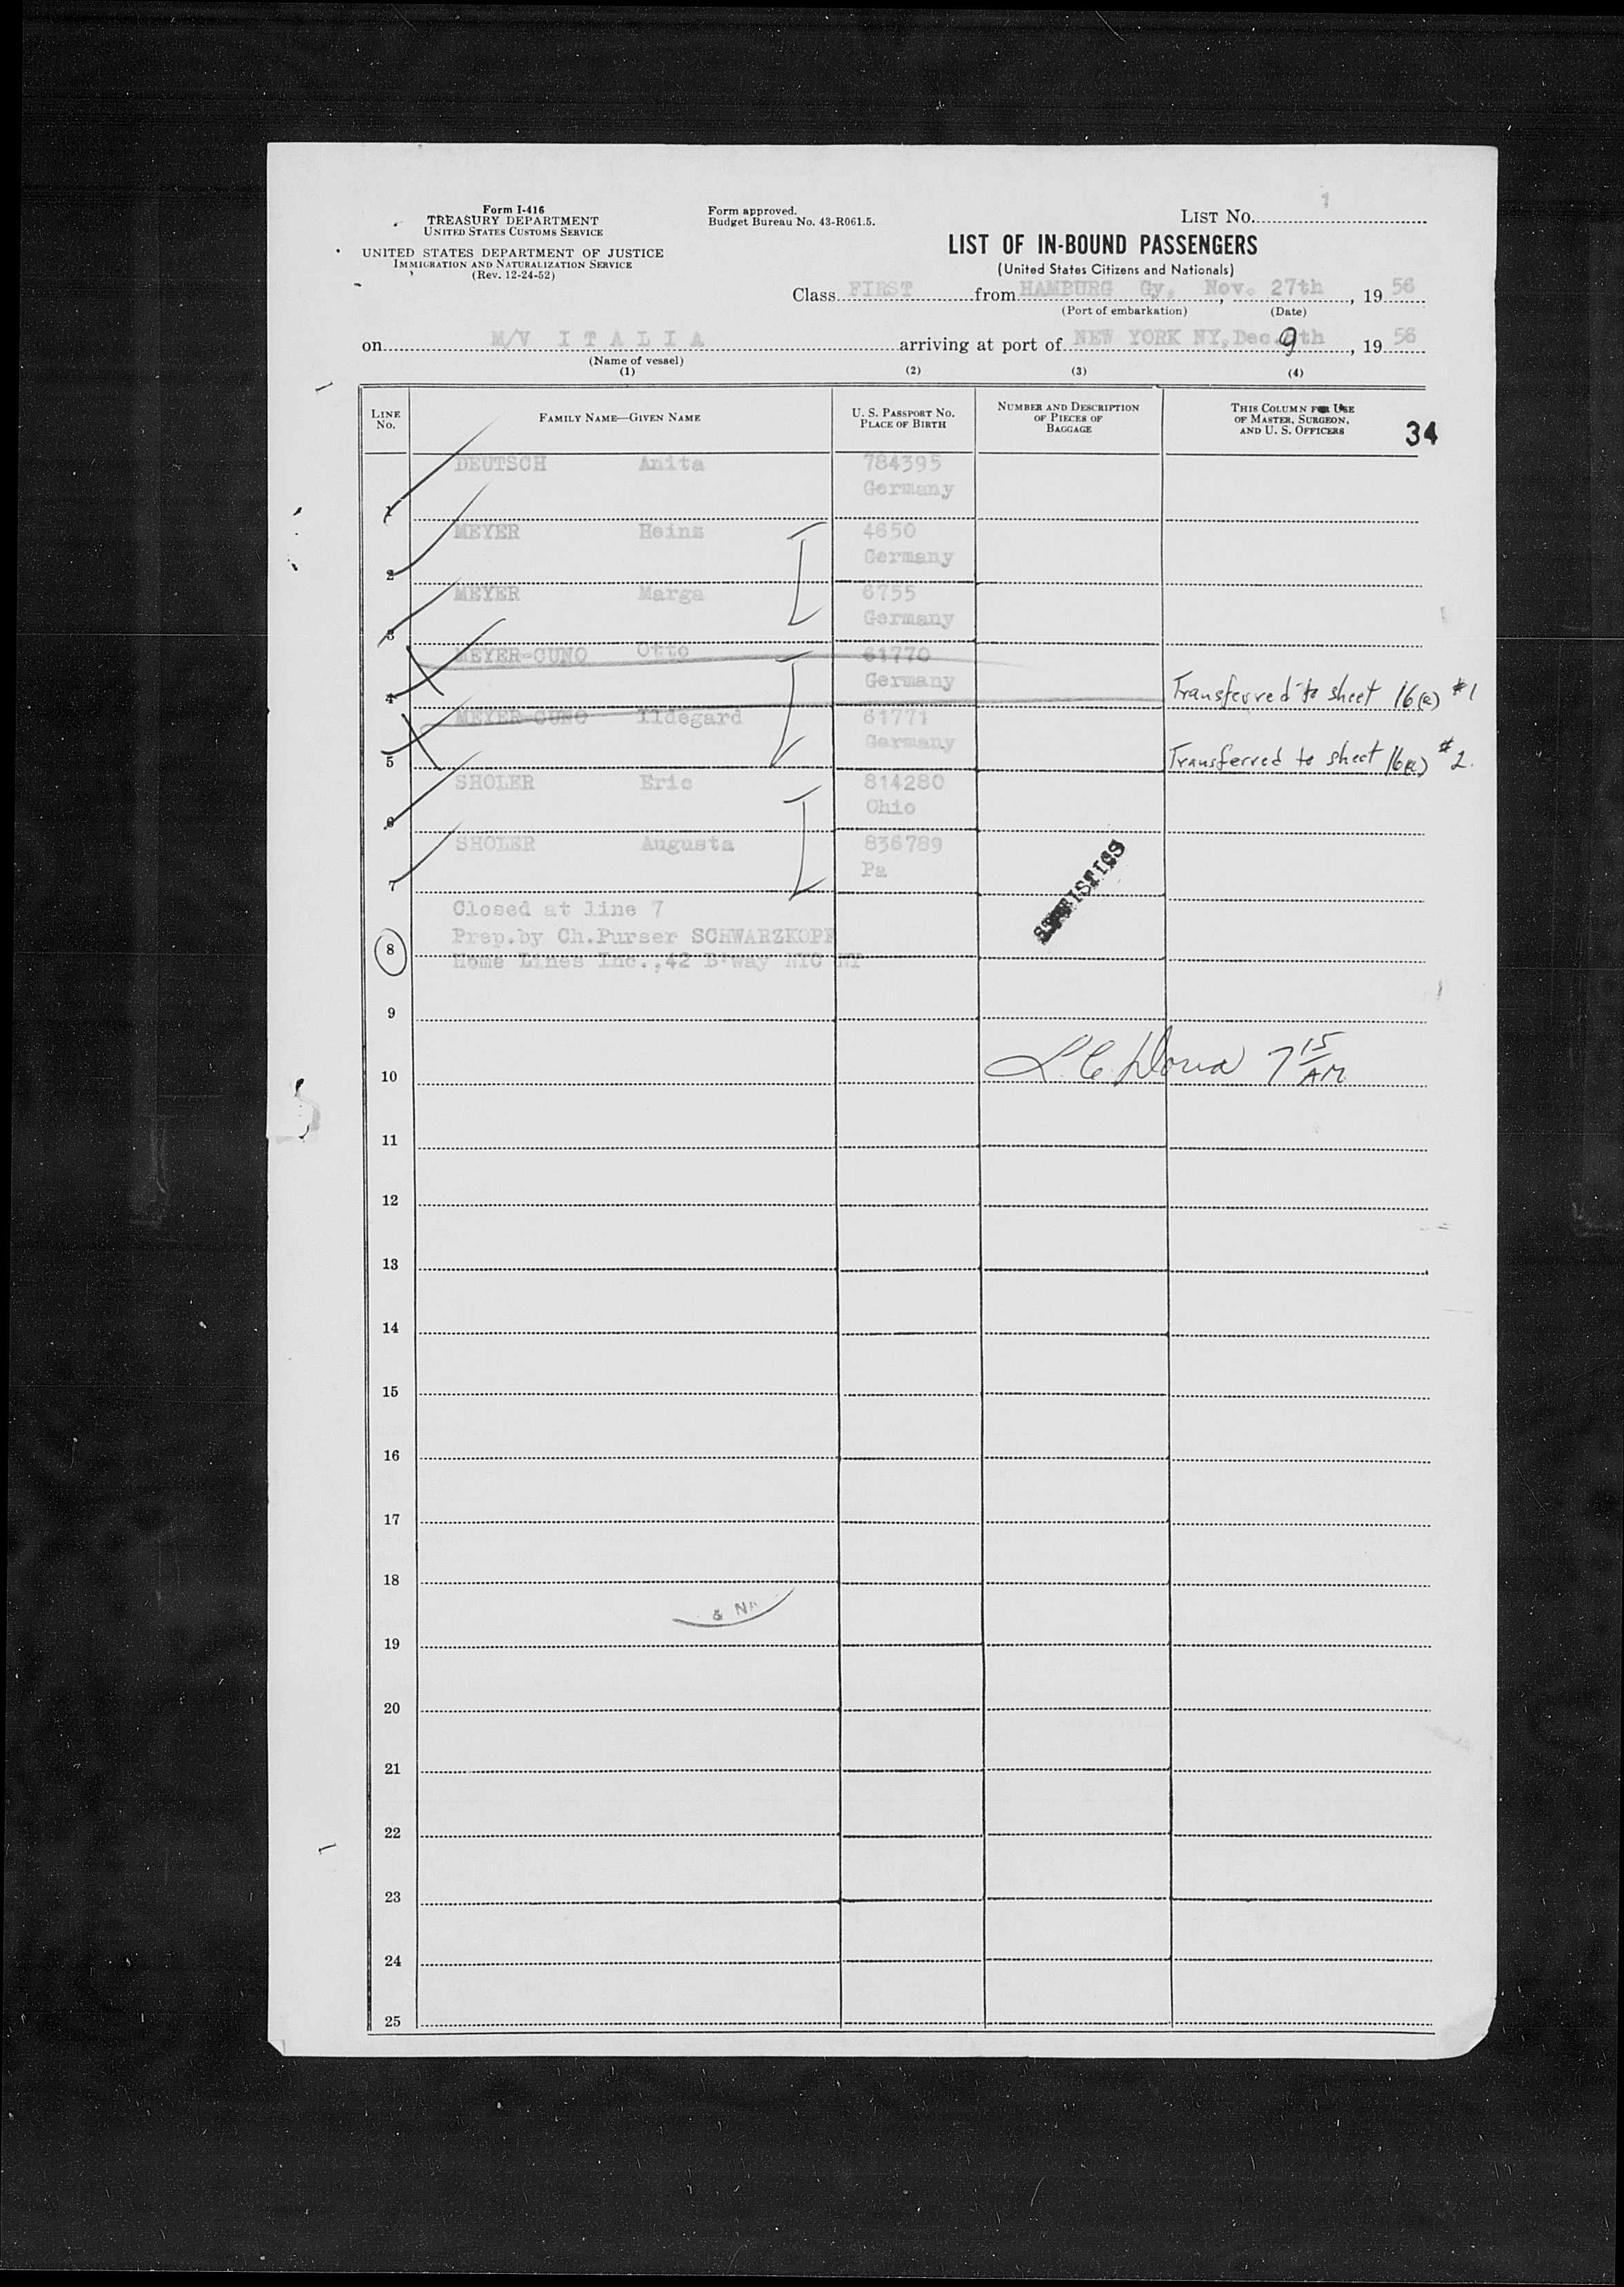 Form I-416
TREASURY DEPARTMENT
UNITED STATES CUSTOMS SERVICE
UNITED STATES DEPARTMENT OF JUSTICE
IMMIGRATION AND NATURALIZATION SERVICE
(Rev. 12-24-52)
Form approved.
Budget Bureau No. 43-R061.5.
LIST No. 1
LIST OF IN-BOUND PASSENGERS
(United States Citizens and Nationals)
Class FIRST from HAMBURG Gy, Nov. 27th, 19 56
(Port of embarkation) (Date)
on M/V ITALIA arriving at port of NEW YORK NY, Dec. 9th, 19 56
(Name of vessel)
(1) (2) (3) (4)
LINE No. FAMILY NAME—GIVEN NAME U. S. PASSPORT No. PLACE OF BIRTH NUMBER AND DESCRIPTION OF PIECES OF BAGGAGE THIS COLUMN FOR USE OF MASTER, SURGEON, AND U. S. OFFICERS 34
DEUTSCH Anita 784395
1 Germany
MEYER Heinz 4650
2 Germany
MEYER Marga 6755
3 Germany
MEYER-CUNO Otto 61770
4 Germany Transferred to sheet 16(a) #1
MEYER-CUNO Ildegard 61771
5 Germany Transferred to sheet 16(a) #2.
SHOLER Eric 814280
6 Ohio
SHOLER Augusta 836789
7 Pa
STATISTICS
Closed at line 7
Prep.by Ch.Purser SCHWARZKOPF
8
Home Lines Inc.,42 B'way NYC NY
9
10 7 15 AM
11
12
13
14
15
16
17
18
& NA
19
20
21
22
23
24
25